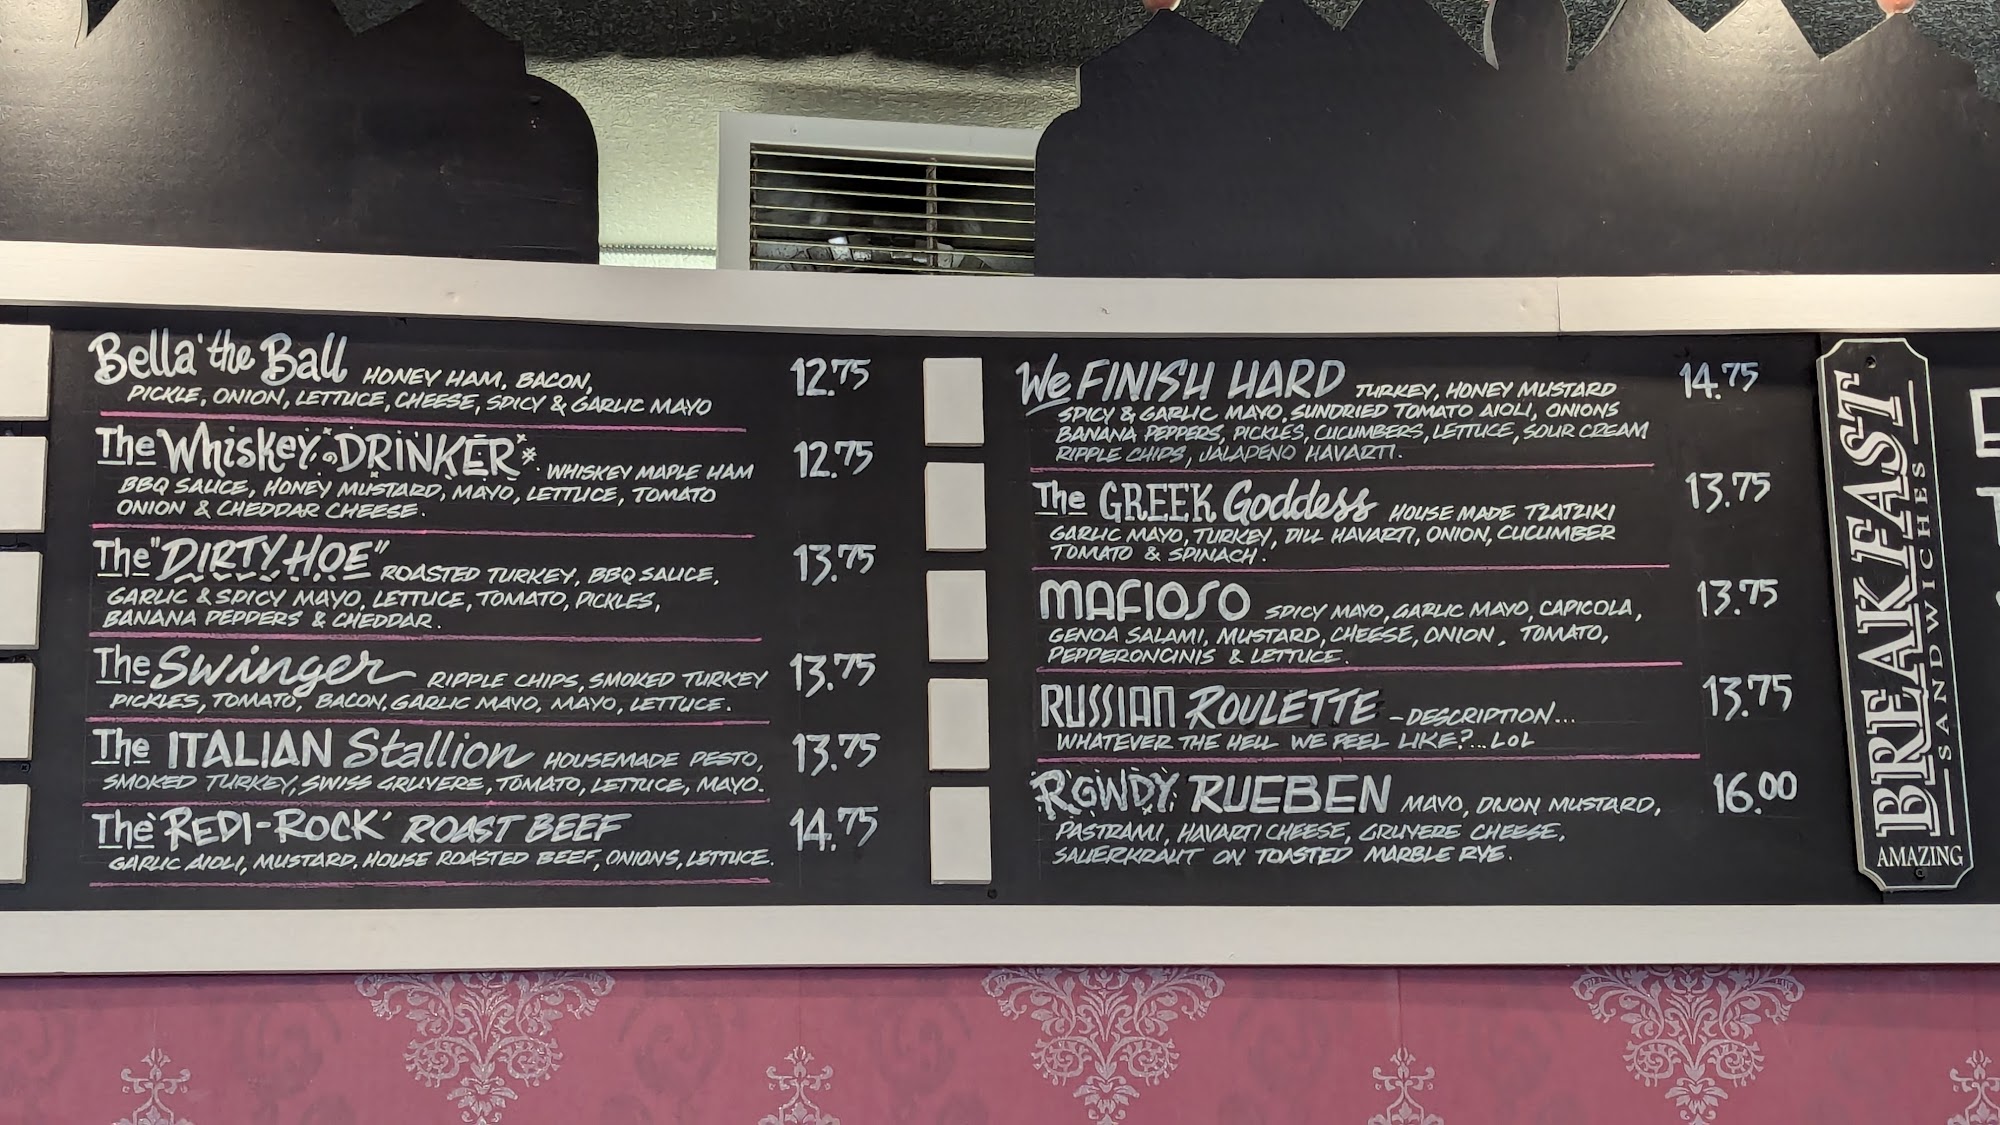 Bella' the Ball HONEY HAM, BACON, 12.75
PICKLE, ONION, LETTUCE, CHEESE, SPICY & GARLIC MAYO
The Whiskey DRINKER WHISKEY MAPLE HAM 12.75
BBQ SAUCE, HONEY MUSTARD, MAYO, LETTUCE, TOMATO
ONION & CHEDDAR CHEESE.
The "DIRTY HOE" ROASTED TURKEY, BBQ SAUCE, 13.75
GARLIC & SPICY MAYO, LETTUCE, TOMATO, PICKLES,
BANANA PEPPERS & CHEDDAR.
The Swinger RIPPLE CHIPS, SMOKED TURKEY 13.75
PICKLES, TOMATO, BACON, GARLIC MAYO, MAYO, LETTUCE.
The ITALIAN Stallion HOUSEMADE PESTO, 13.75
SMOKED TURKEY, SWISS GRUYERE, TOMATO, LETTUCE, MAYO.
The 'REDI-ROCK' ROAST BEEF 14.75
GARLIC AIOLI, MUSTARD, HOUSE ROASTED BEEF, ONIONS, LETTUCE.
We FINISH HARD TURKEY, HONEY MUSTARD 14.75
SPICY & GARLIC MAYO, SUNDRIED TOMATO AIOLI, ONIONS
BANANA PEPPERS, PICKLES, CUCUMBERS, LETTUCE, SOUR CREAM
RIPPLE CHIPS, JALAPENO HAVARTI.
The GREEK Goddess HOUSE MADE TZATZIKI 13.75
GARLIC MAYO, TURKEY, DILL HAVARTI, ONION, CUCUMBER
TOMATO & SPINACH.
MAFIOSO SPICY MAYO, GARLIC MAYO, CAPICOLA, 13.75
GENOA SALAMI, MUSTARD, CHEESE, ONION, TOMATO,
PEPPERONCINIS & LETTUCE.
RUSSIAN ROULETTE -DESCRIPTION... 13.75
WHATEVER THE HELL WE FEEL LIKE?...LOL
ROWDY RUEBEN MAYO, DIJON MUSTARD, 16.00
PASTRAMI, HAVARTI CHEESE, GRUYERE CHEESE,
SAUERKRAUT ON TOASTED MARBLE RYE.
BREAKFAST
SANDWICHES
AMAZING